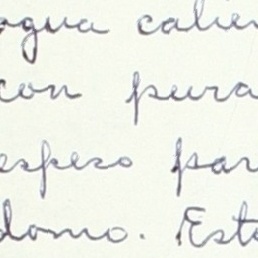 agua calien
con pura
espeso par
domo. Esto